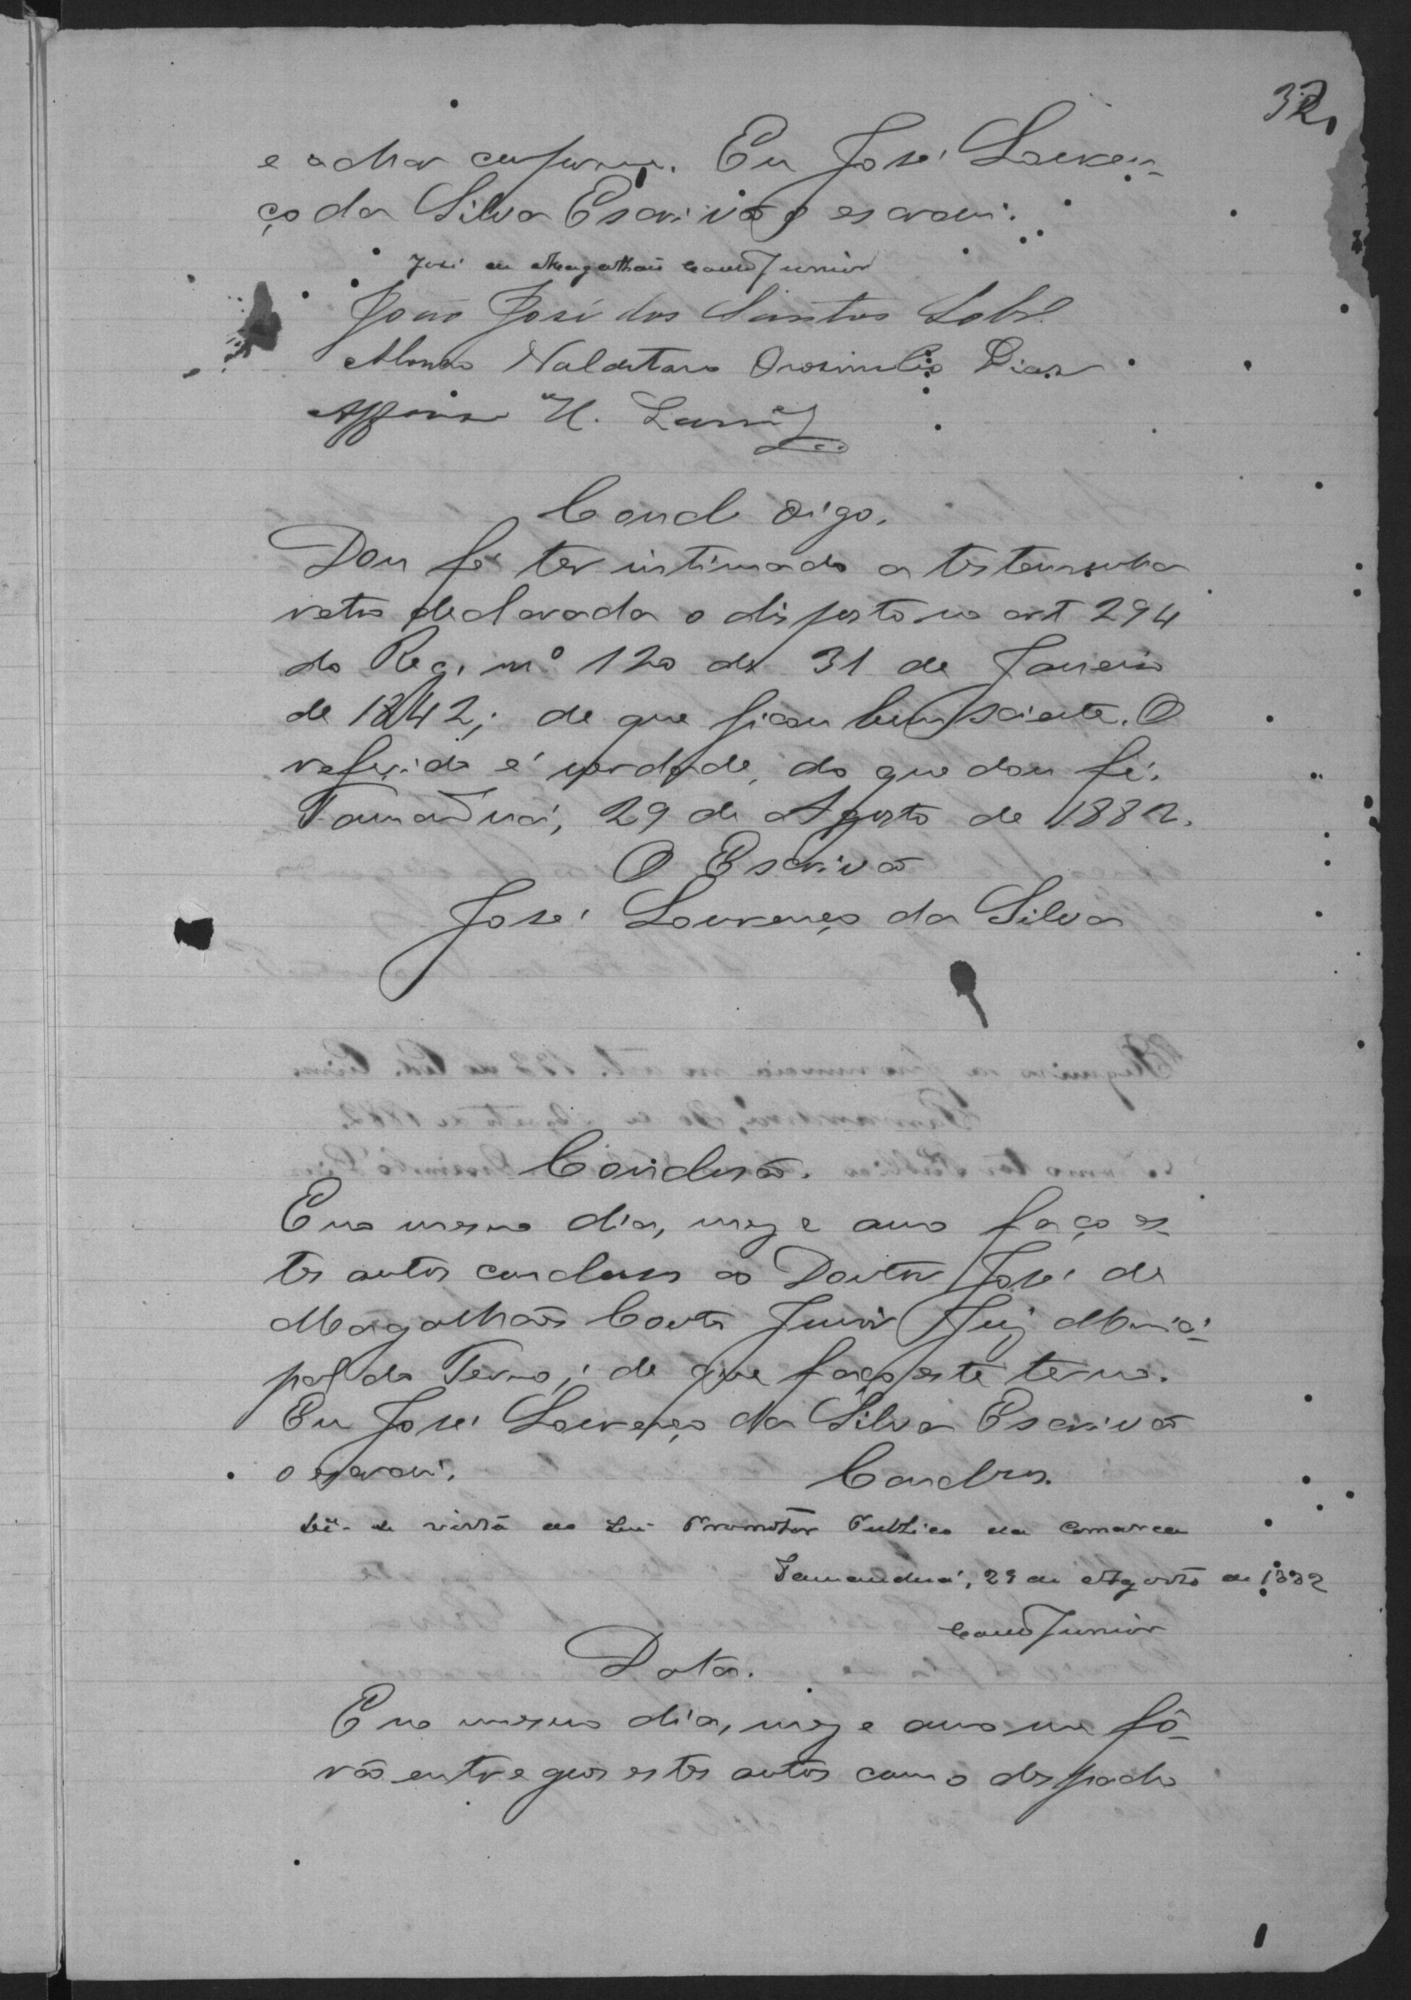 32
e achar conforme. Eu José Louren-
ço da Silva Escrivão o escrevi.
José de Magalhães Couto Junior
João José dos Santos Lobo
Affonso H.
Concl digo.
Dou fé ter intimado a testemunha
retro declarada o disposto no art 294
do Reg. nº 120 de 31 de Janeiro
de 1842; de que ficou bem sciente. O
referido é verdade, do que dou fé.
Tamanduá, 29 de Agosto de 1882.
O Escrivão
José Lourenço da Silva
Conclusão.
E no mesmo dia, mez e anno faço es-
tes autos conclusos ao Doutor José de
Magalhães Couto Junior Juiz Munici-
pal do Termo; de que faço este termo.
Eu José Lourenço da Silva Escrivão
o escrevi. Conclusos.
Dê-se vista ao Promotor Publico da Comarca
Tamanduá, 29 de Agosto de 1882
Couto Junior
Data.
E no mesmo dia, mez e anno me fô-
rão entregues estes autos com o despacho